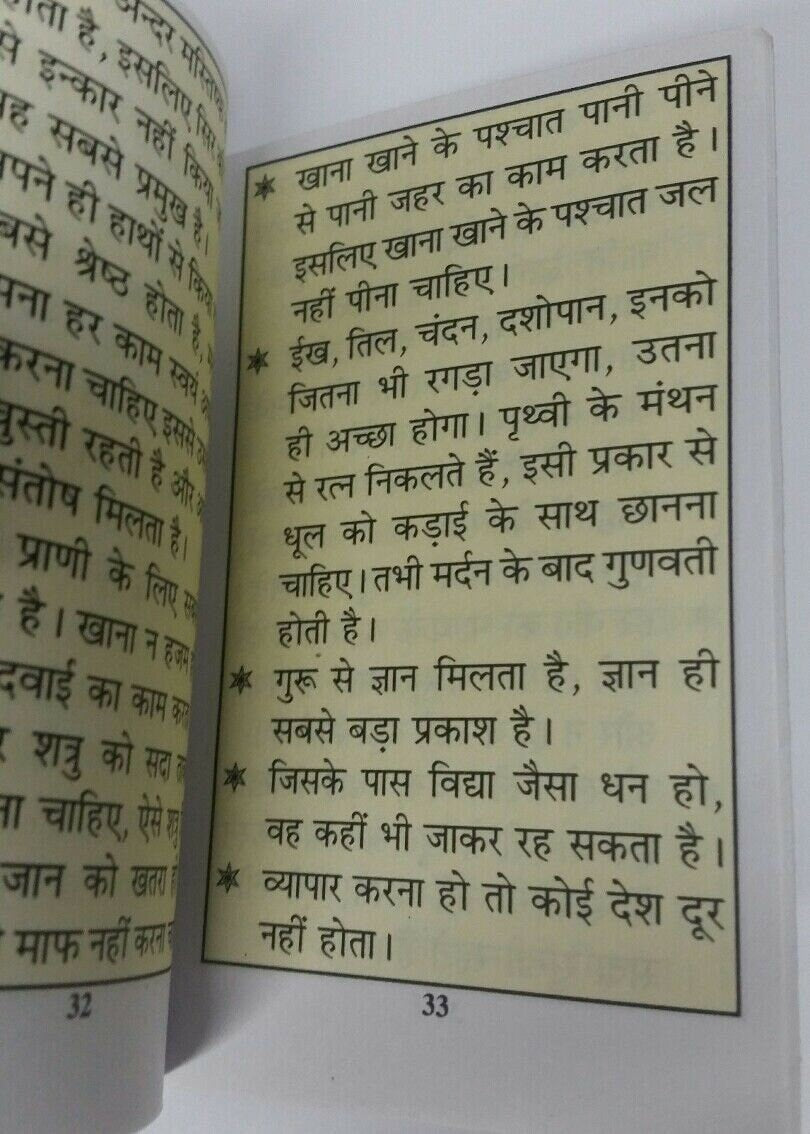 अन्दर
होता है, इसलिए सिर
से इन्कार नहीं किया
सबसे प्रमुख है।
ही हाथों से किया
श्रेष्ठ होता है,
हर काम स्वयं
करना चाहिए इससे
रहती है और
संतोष मिलता है।
प्राणी के लिए
है। खाना न हजम
दवाई का काम
शत्रु को सदा
चाहिए, ऐसे शत्रु
जान को खतरा
माफ नहीं करना
32
खाना खाने के पश्चात पानी पीने
से पानी जहर का काम करता है।
इसलिए खाना खाने के पश्चात जल
नहीं पीना चाहिए।
ईख, तिल, चंदन, दशोपान, इनको
जितना भी रगड़ा जाएगा, उतना
ही अच्छा होगा। पृथ्वी के मंथन
से रत्न निकलते हैं, इसी प्रकार से
धूल को कड़ाई के साथ छानना
चाहिए। तभी मर्दन के बाद गुणवती
होती है।
गुरू से ज्ञान मिलता है, ज्ञान ही
सबसे बड़ा प्रकाश है।
जिसके पास विद्या जैसा धन हो,
वह कहीं भी जाकर रह सकता है।
व्यापार करना हो तो कोई देश दूर
नहीं होता।
33